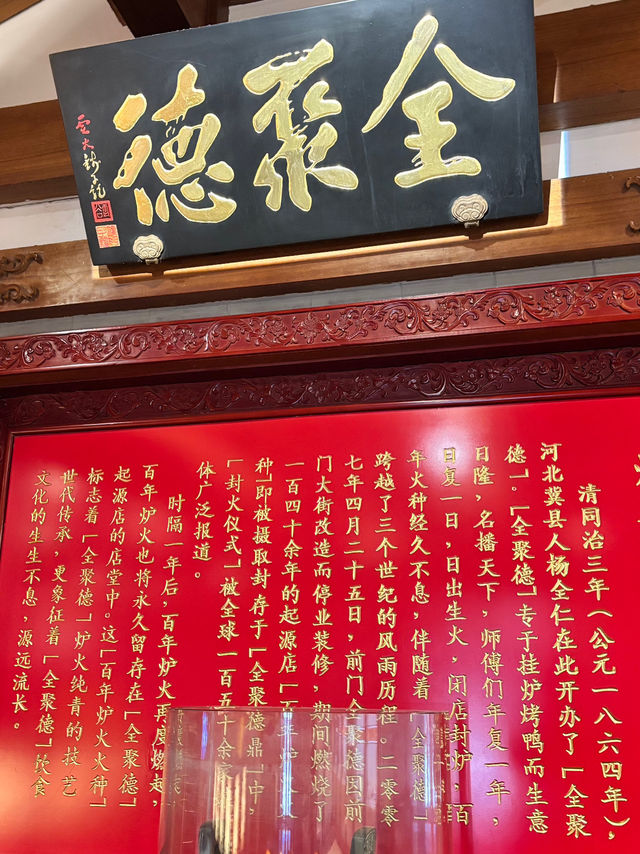 全聚德
清同治三年（公元一八六四年），
河北冀县人杨全仁在此开办了「全聚
德」。「全聚德」专于挂炉烤鸭而生意
日隆，名播天下，师傅们年复一年，
日复一日，日出生火，闭店封炉，百
年火种经久不息，伴随着「全聚德」
跨越了三个世纪的风雨历程。二零零
七年四月二十五日，前门全聚德因前
门大街改造而停业装修，期间燃烧了
一百四十余年的起源店「百年炉火火
种」即被摄取封存于「全聚德鼎」中，
「封火仪式」被全球一百五十余家
体广泛报道。
时隔一年后，百年炉火再度燃起，
百年炉火也将永久留存在「全聚德」
起源店的店堂中。这「百年炉火火种」
标志着「全聚德」炉火纯青的技艺
世代传承，更象征着「全聚德」饮食
文化的生生不息，源远流长。